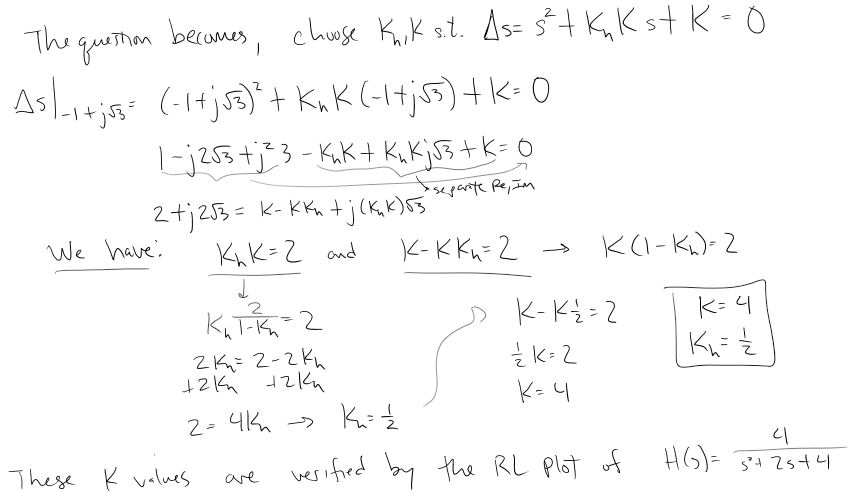 The question becomes, choose Kₕ, K s.t. Δs = s² + KₕK s + K = 0
Δs|₋₁₊ⱼ√₃ = (-1+j√3)² + KₕK(-1+j√3) + K = 0
1 - j2√3 + j²3 - KₕK + KₕKj√3 + K = 0
separate Re, Im
2 + j2√3 = K - KKₕ + j(KₕK)√3
We have: KₕK = 2 and K - KKₕ = 2 → K(1 - Kₕ) = 2
Kₕ 2/(1-Kₕ) = 2
2Kₕ = 2 - 2Kₕ
+2Kₕ +2Kₕ
2 = 4Kₕ → Kₕ = 1/2
K - K 1/2 = 2
1/2 K = 2
K = 4
K = 4
Kₕ = 1/2
These K values are verified by the RL plot of H(s) = 4/(s² + 2s + 4)